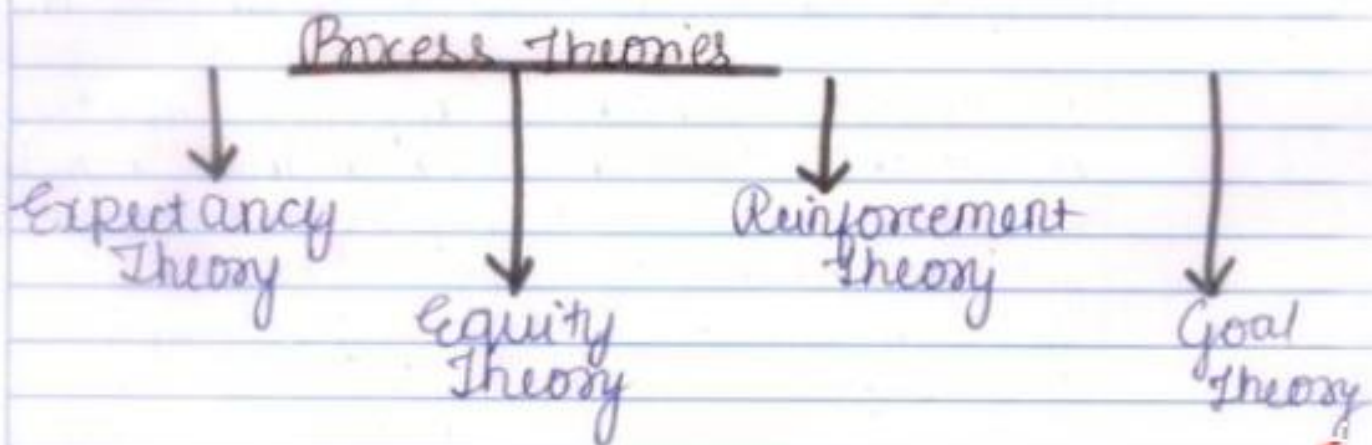 Process Theories
Expectancy
Theory
Equity
Theory
Reinforcement
Theory
Goal
Theory